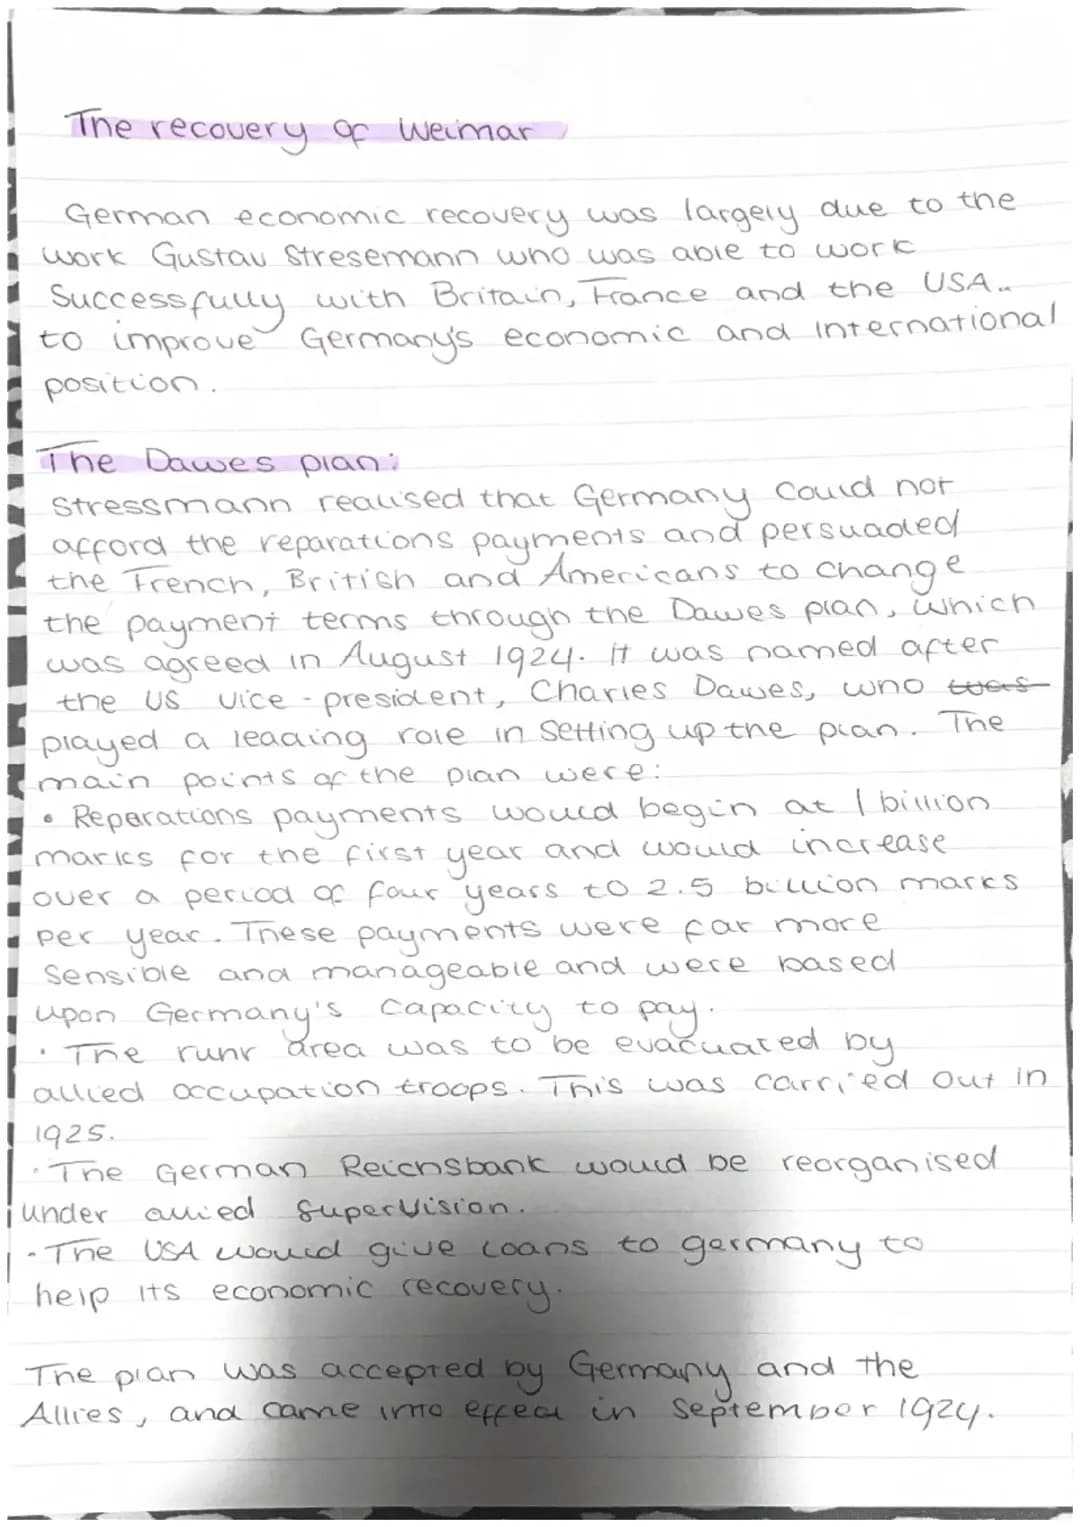 The recovery of Weimar
German economic recovery was largely due to the
work Gustav Stresemann who was able to work
Successfully with Britain, France and the USA..
to improve Germany's economic and international
position.
The Dawes plan:
Stressmann realised that Germany could not
afford the reparations payments and persuaded
the French, British and Americans to change
the payment terms through the Dawes plan, which
was agreed in August 1924. it was named after
the US vice-president, Charles Dawes, who was
played a leading role in setting up the plan. The
main points of the plan were:
• Reparations payments would begin at 1 billion
marks for the first year and would increase
over a period of four years to 2.5 billion marks
per year. These payments were far more
sensible and manageable and were based
upon Germany's capacity to pay.
• The ruhr area was to be evacuated by
allied occupation troops. This was carried out in
1925.
• The German Reichsbank would be reorganised
under allied supervision.
- The USA would give loans to germany to
help its economic recovery.
The plan was accepted by Germany and the
Allies, and came into effect in September 1924.